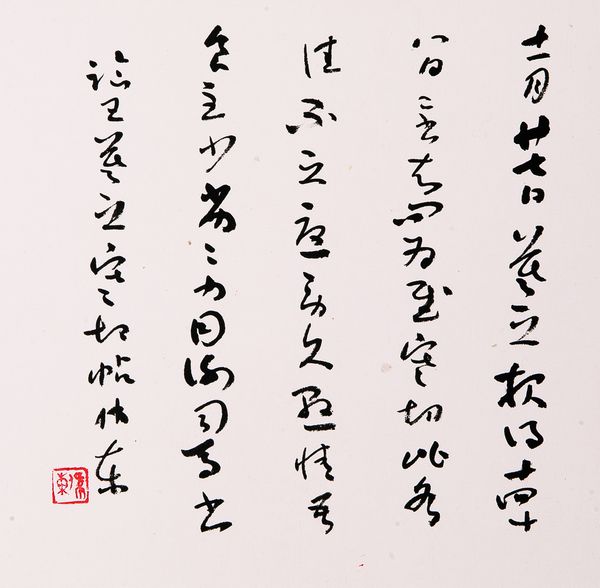 十一月廿七日羲之報得十四十
八日二書知問為慰寒切比各
佳不之憂勞久懸情吾
食至少劣劣力因謝司馬書
臨王羲之寒切帖 東